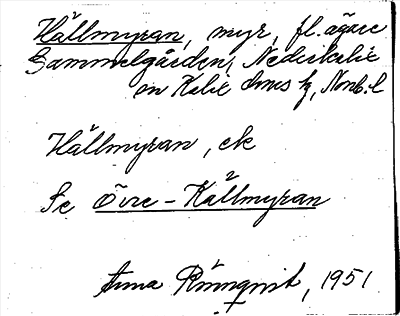 Källmyran, myr, fl. ägare
Gammelgården, Nederkalix
en Kalix Norrb. l
Källmyran, ek
Se Övre-Källmyran
Anna Rönnqvist, 1951